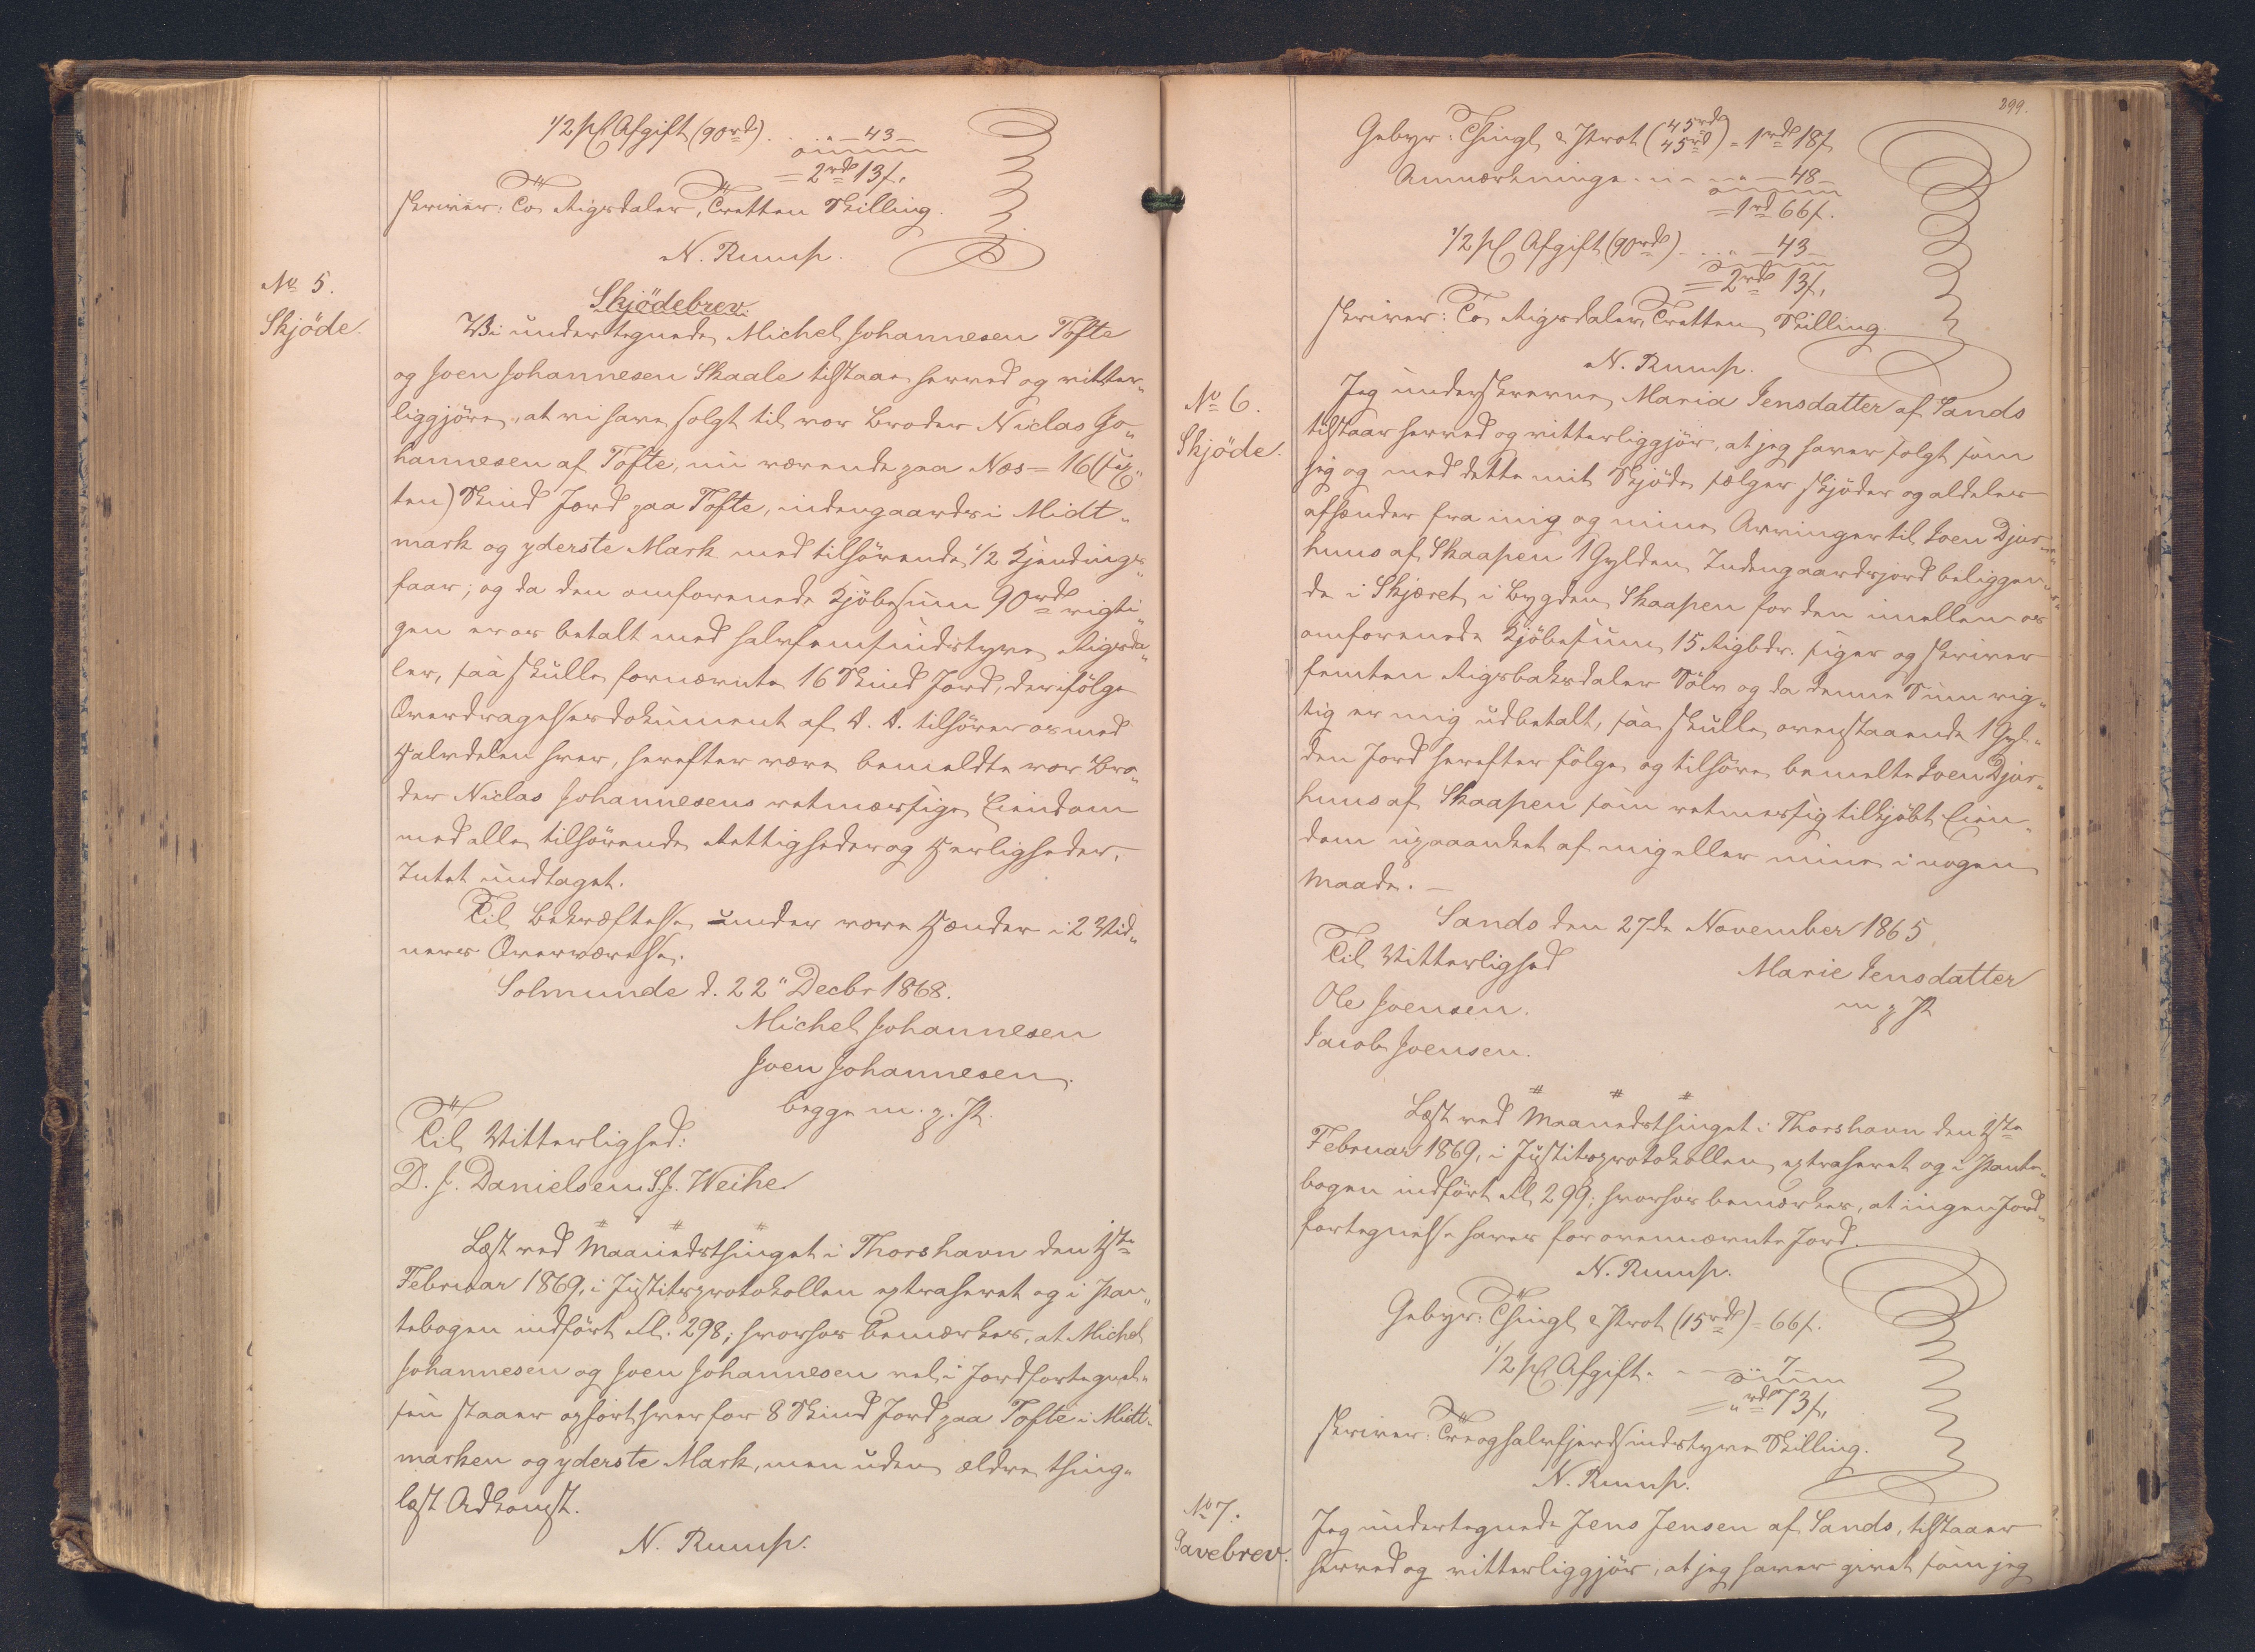 1/2 pC Afgift (90rd) . . „ – 43 –
= 2rd 13ſ.
skriver: To Rigsdaler, Tretten Skilling.
N. Rump.
No 5.
Skjöde.
Skjödebrev.
Vi undertegnede Michel Johannesen Tofte
og Joen Johannesen Skaale tilstaae herved og vitter„
liggjöre, at vi have solgt til vor Broder Niclas Jo„
hannesen af Tofte, nu værende paa Næs = 16 (sex„
ten) Skind Jord paa Tofte, indengaards i Midt„
mark og yderste Mark med tilhörende 1/2 Kjendings„
faar; og da den omforenede Kjöbesum 90rd rigti„
gen er os betalt med halvfemsindstyve Rigsda„
ler, saa skulle fornævnte 16 Skind Jord, der ifölge
Overdragelsesdokument af D. D. tilhörer os med
Halvdelen hver, herefter være bemeldte vor Bro„
der Niclas Johannesens retmæssige Eiendom
med alle tilhörende Rettigheder og Herligheder,
Intet undtaget.
Til Bekræftelse under vore Hænder i 2 Vid„
ners Overværelse.
Solmunde d. 22" Decbr 1868.
Michel Johannesen
Joen Johannesen.
begge m. p. P.
Til Vitterlighed:
D. J. Danielsen. S. J. Weihe
Læst ved Maanedsthinget i Thorshavn den 1ste
Februar 1869, i Justitsprotokollen extraheret og i Pan„
tebogen indfört Fol. 298; hvorhos bemærkes, at Michel
Johannesen og Joen Johannesen vel i Jordfortegnel„
sen staaer opfört hver for 8 Skind Jord paa Tofte i Midt„
marken og yderste Mark, men uden ældre thing„
læst Adkomst.
N. Rump.
299.
Gebyr: Thingl. & Prot (45rd 45rd) = 1rd 18ſ
Anmærkninge . . . „ – 48 –
= 1rd 66ſ.
1/2 pC Afgift (90rd) . . . „ 43
= 2rd 13ſ.
skriver: To Rigsdaler, Tretten Skilling.
N. Rump.
No 6.
Skjöde.
Jeg underskrevne Maria Jensdatter af Sands
tilstaar herved og vitterliggjör, at jeg haver solgt som
jeg og med dette mit Skjöde sælger skjöder og aldeles
afhænder fra mig og mine Arvinger til Joen Djur„
huus af Skaapen 1 Gylden Indengaardsjord beliggen„
de i Skjæret i Bygden Skaapen for den imellem os
omforenede Kjöbesum 15 Rigbdr. siger og skriver
femten Rigsbaksdaler Sölv og da denne Sum rig„
tig er mig udbetalt, saa skulle ovenstaaende 1 Gyl„
den Jord herefter fölge og tilhöre bemelte Joen Djur„
huus af Skaapen som retmessig tilkjöbt Eien„
dom upaaanket af mig eller mine i nogen
Maade. –
Sands den 27de November 1865
Til Vitterlighed
Marie Jensdatter
Ole Joensen.
m p P
Jacob Joensen.
Læst ved Maanedsthinget i Thorshavn den 1ste
Februar 1869, i Justitsprotokollen extraheret og i Pante„
bogen indfört Fol. 299; hvorhos bemærkes, at ingen Jord„
fortegnelse haves for ovennævnte Jord.
N. Rump.
Gebyr: Thingl. & Prot (15rd) = 66ſ.
1/2 pC Afgift . – – „ 7
= „rd 73ſ.
skriver: Treoghalvfjerdsindstyve Skilling.
N. Rump.
No 7.
Gavebrev.
Jeg undertegnede Jens Jensen af Sands, tilstaaer
herved og vitterliggjör, at jeg haver givet som jeg